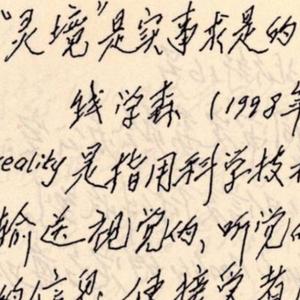 “灵境”是实事求是的
钱学森 (1998年
reality 是指用科学技术
输送视觉的、听觉的
的信息,使接受者